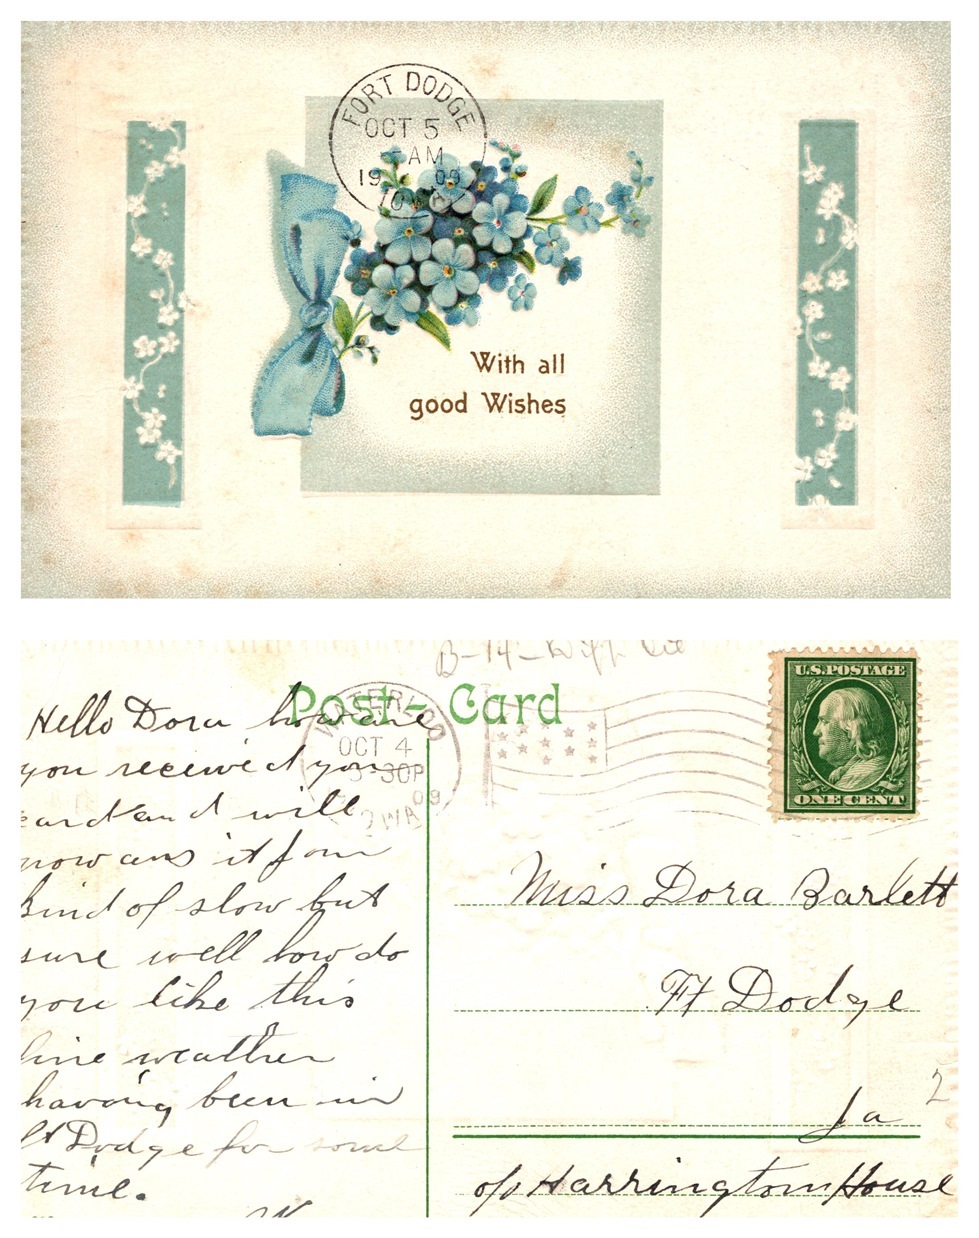 FORT DODGE
OCT 5
-AM
19 09
IOWA
With all
good Wishes
Post-Card
WATERLOO
OCT 4
5-30P
09
IOWA
U.S. POSTAGE
ONE CENT
Hello Dora how are
you received your
card and will
now ans it for
kind of slow but
sure well how do
you like this
fine weather
having been in
Ft Dodge for some
time.
Miss Dora Barlett
Ft Dodge
Ia
2
c/o Harrington House